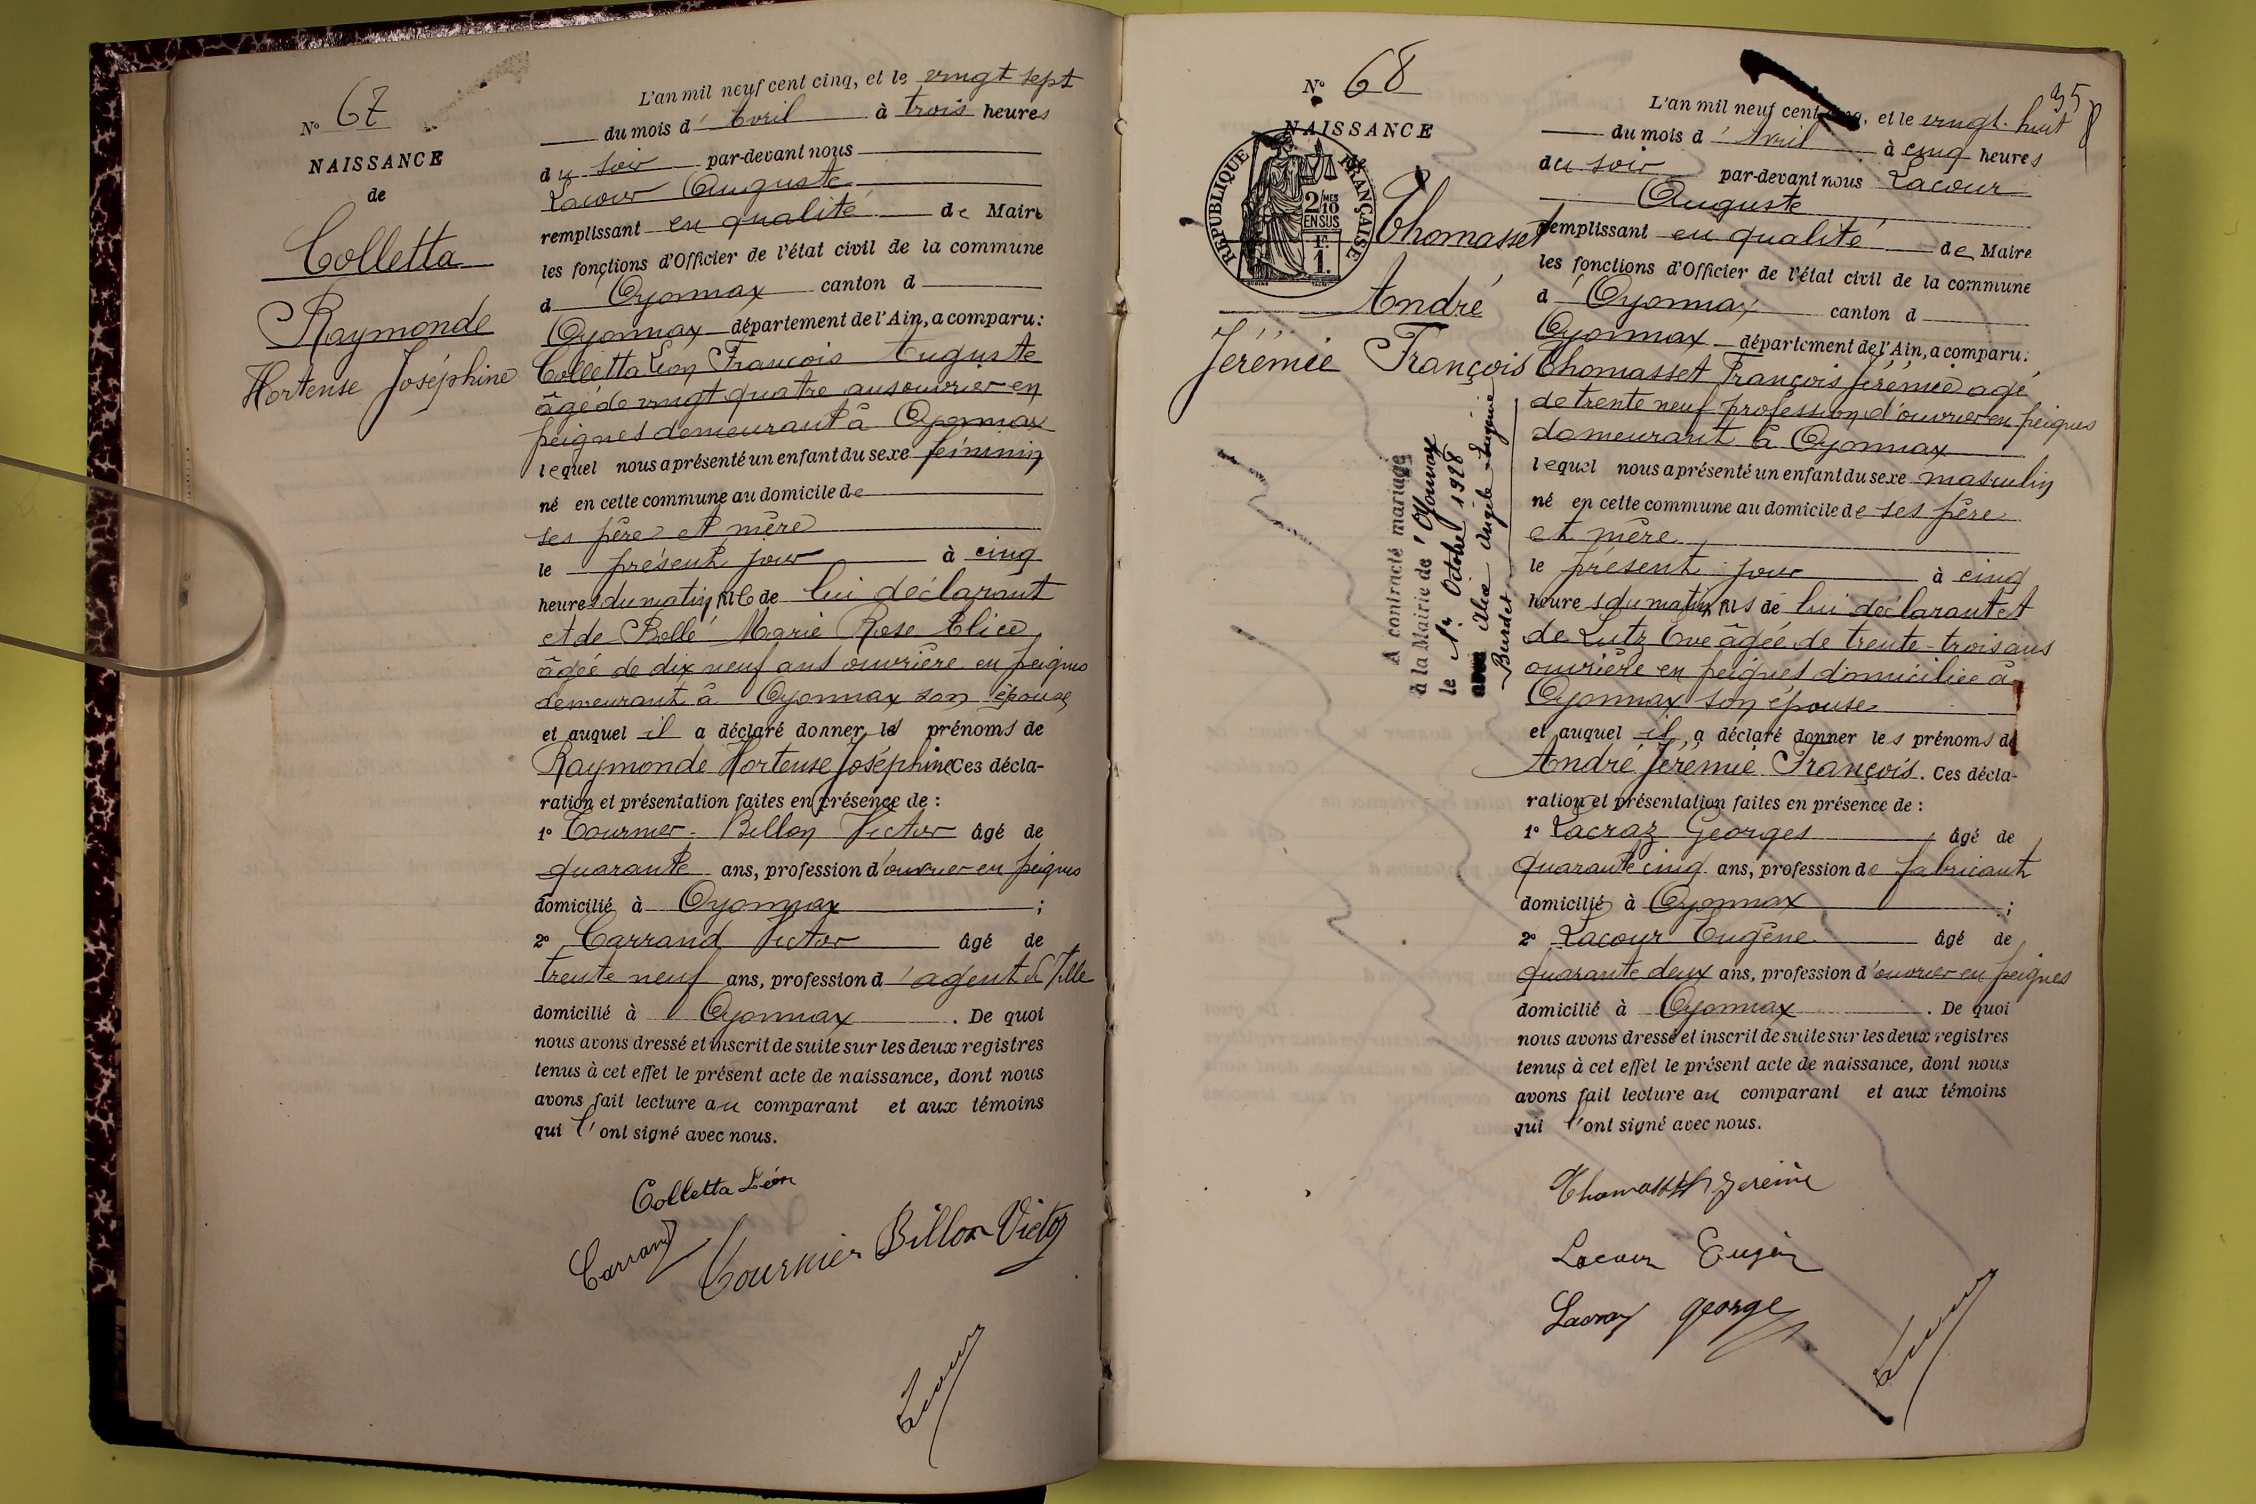 N° 67
NAISSANCE
de
Colletta
Raymonde
Hortense Joséphine
L'an mil neuf cent cinq, et le vingt sept
du mois d' Avril à trois heures
du soir par-devant nous
Lacour Auguste
remplissant en qualité de Maire
les fonctions d'Officier de l'état civil de la commune
d Oyonnax canton d
Oyonnax département de l'Ain, a comparu:
Colletta Léon François Auguste
âgé de vingt quatre ans ouvrier en
peignes demeurant à Oyonnax
lequel nous a présenté un enfant du sexe féminin
né en cette commune au domicile de
ses père et mère
le présent jour à cinq
heures du matin, fille de lui déclarant
et de Bellé Marie Rose Alice
âgée de dix neuf ans ouvrière en peignes
demeurant à Oyonnax son épouse
et auquel il a déclaré donner les prénoms de
Raymonde Hortense Joséphine Ces décla-
ration et présentation faites en présence de :
1° Tournier-Billon Victor âgé de
quarante ans, profession d'ouvrier en peignes
domicilié à Oyonnax ;
2° Carrand Victor âgé de
trente neuf ans, profession d'agent de Ville
domicilié à Oyonnax . De quoi
nous avons dressé et inscrit de suite sur les deux registres
tenus à cet effet le présent acte de naissance, dont nous
avons fait lecture au comparant et aux témoins
qui l'ont signé avec nous.
Colletta Léon
Carrand Tournier Billon Victor
Lacour
35
N° 68
NAISSANCE
RÉPUBLIQUE FRANÇAISE
2/10 MES
EN SUS
1F.
1.
Thomasset
André
Jérémie François
A contracté mariage
à la Mairie de Oyonnax
le 1er Octobre 1928
avec Alice Angèle Eugénie
Burdet
L'an mil neuf cent cinq, et le vingt-huit
du mois d' Avril à cinq heures
du soir par-devant nous Lacour
Auguste
remplissant en qualité de Maire
les fonctions d'Officier de l'état civil de la commune
d' Oyonnax canton d
Oyonnax département de l'Ain, a comparu:
Thomasset François Jérémie agé
de trente neuf profession d'ouvrier en peignes
demeurant à Oyonnax
lequel nous a présenté un enfant du sexe masculin
né en cette commune au domicile de ses père
et mère
le présent jour à cinq
heures du matin fils de lui déclarant et
de Lutz Eve âgée de trente-trois ans
ouvrière en peignes domiciliée à
Oyonnax son épouse
et auquel il a déclaré donner les prénoms de
André Jérémie François. Ces décla-
ration et présentation faites en présence de :
1° Lacraz Georges, âgé de
quarante cinq ans, profession de fabricant
domicilié à Oyonnax ;
2° Lacour Eugène âgé de
quarante deux ans, profession d'ouvrier en peignes
domicilié à Oyonnax . De quoi
nous avons dressé et inscrit de suite sur les deux registres
tenus à cet effet le présent acte de naissance, dont nous
avons fait lecture au comparant et aux témoins
qui l'ont signé avec nous.
Thomasset Jeremie
Lacour Eugèn
Lacraz george
Lacour